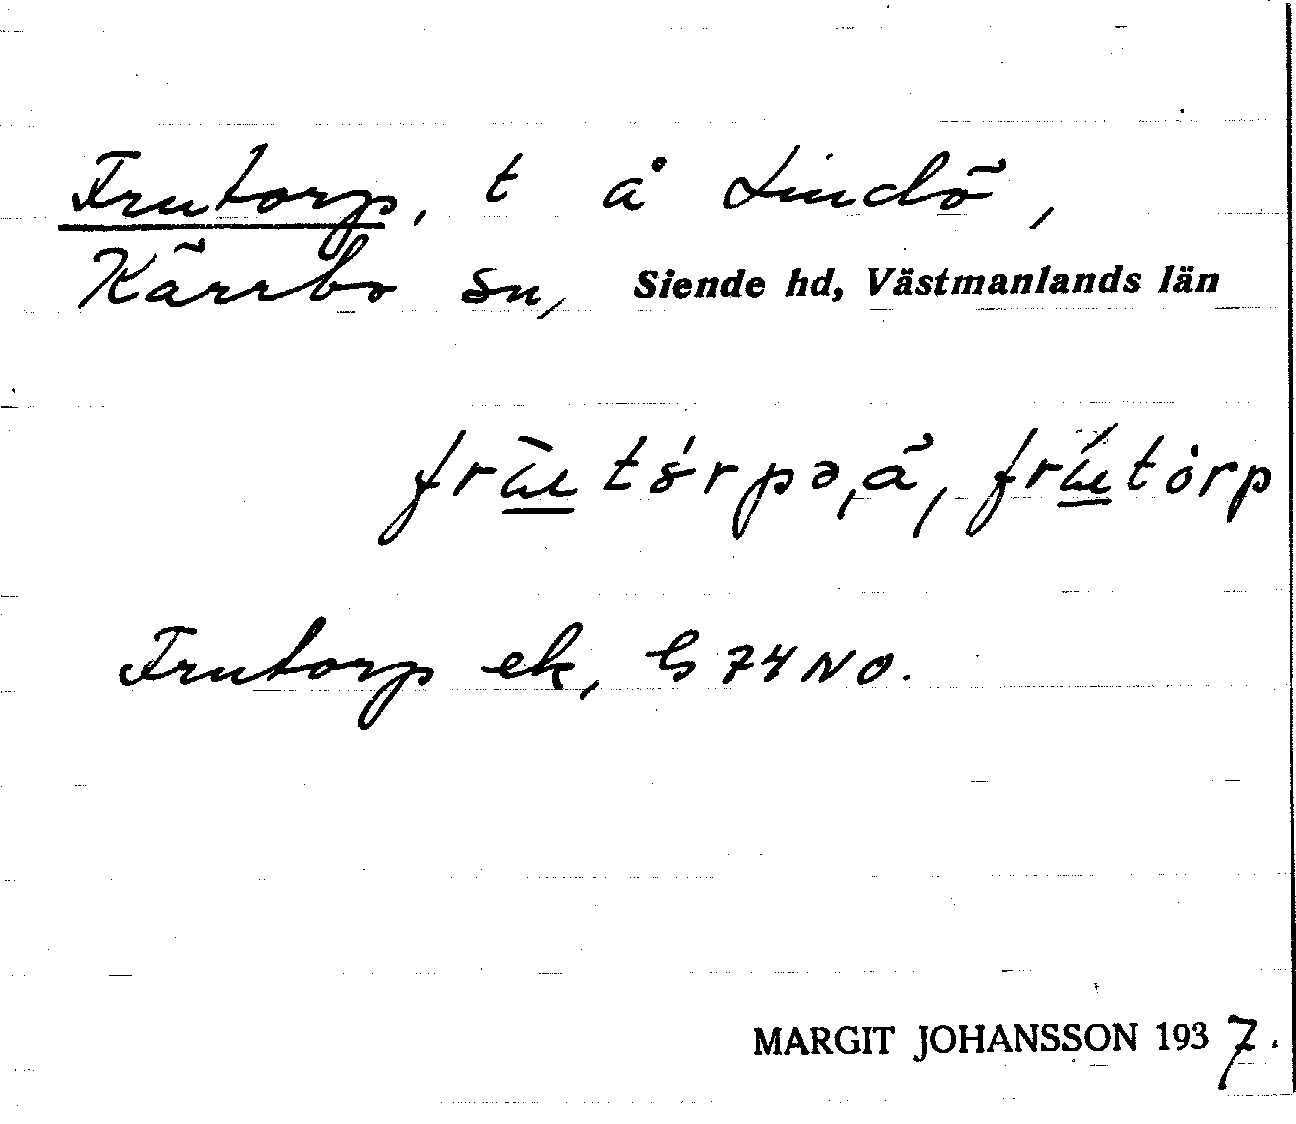 Frutorp, t å Lindö,
Kärrbo sn, Siende hd, Västmanlands län
Frutorp ek, G 74 NO.
MARGIT JOHANSSON 1937.